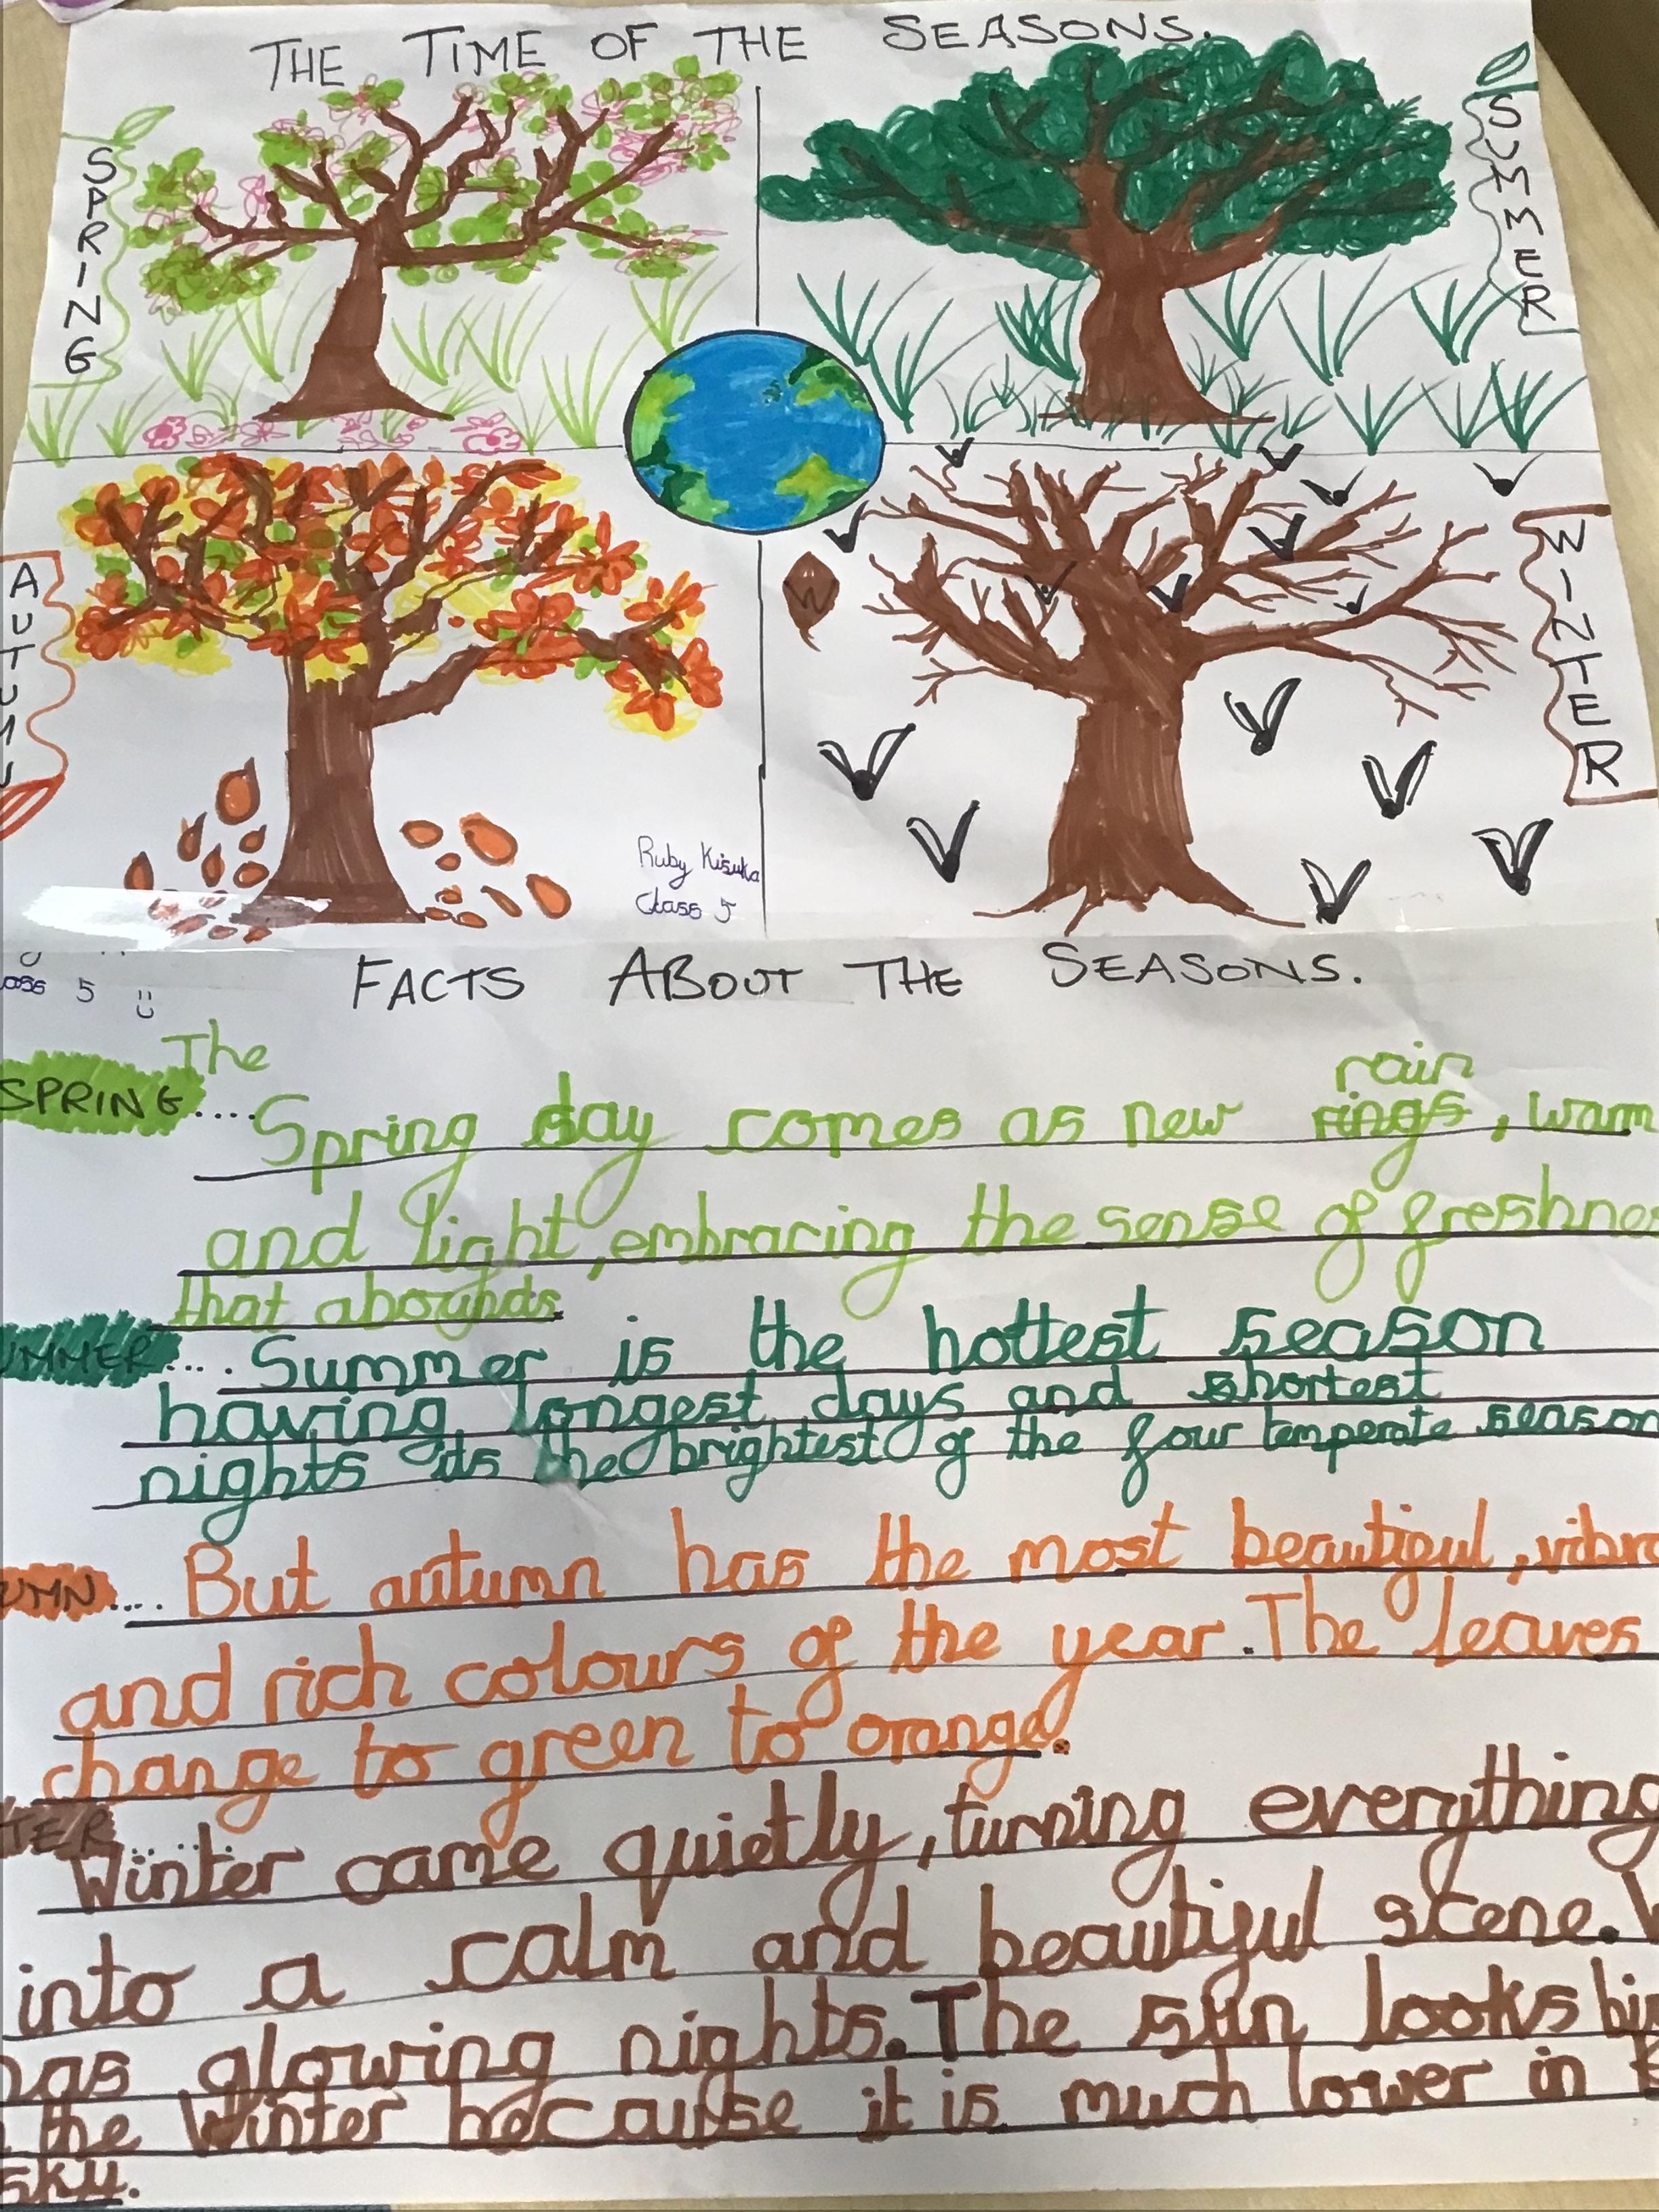 THE TIME OF THE SEASONS.
SPRING
SUMMER
AUTUMN
W
WINTER
Ruby Kisuka
Class 5
5
FACTS ABOUT THE SEASONS.
The
rain
SPRING.... Spring day comes as new rings, warm
and light, embracing the sense of
that aboughds
.... Summer is the hottest season
having longest days and shortest
nights its the brightest of the four temperate season
.... But autumn has the most beautiful,
and rich colours of the year. The leaves
change to green to orange.
Winter came quietly, turning everything
into a calm and beautiful scene.
has glowing nights. The sun looks
the Winter because it is much lower in
sky.